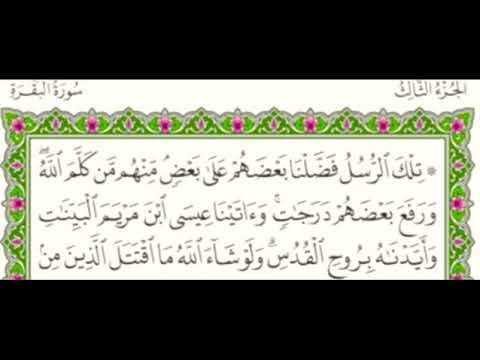 الجزء الثالث سورة البقرة
۞ تِلْكَ ٱلرُّسُلُ فَضَّلْنَا بَعْضَهُمْ عَلَىٰ بَعْضٍۘ مِّنْهُم مَّن كَلَّمَ ٱللَّهُۖ
وَرَفَعَ بَعْضَهُمْ دَرَجَٰتٍۚ وَءَاتَيْنَا عِيسَى ٱبْنَ مَرْيَمَ ٱلْبَيِّنَٰتِ
وَأَيَّدْنَٰهُ بِرُوحِ ٱلْقُدُسِۗ وَلَوْ شَآءَ ٱللَّهُ مَا ٱقْتَتَلَ ٱلَّذِينَ مِنۢ